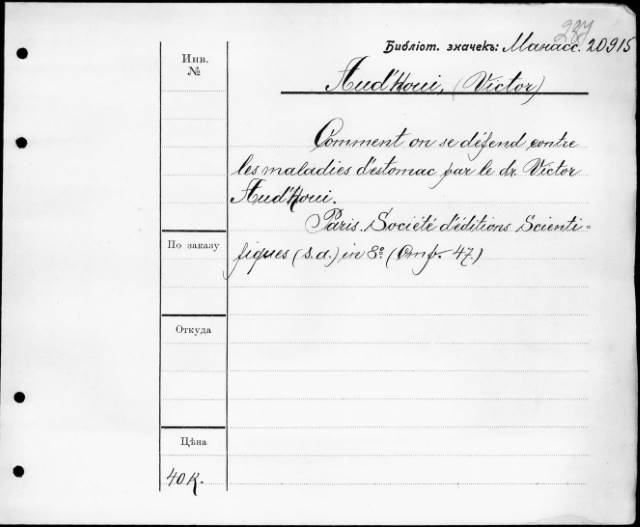 237
Библіот. значекъ: Манасс. 20915
Инв.
№
Aud'Houi, (Victor)
Comment on se défend contre
les maladies d'estomac par le dr. Victor
Aud'Houi.
Paris. Société d'éditions Scienti-
fiques (s.d.) in 8º. (Стр. 47.)
По заказу
Откуда
Цѣна
40 к.